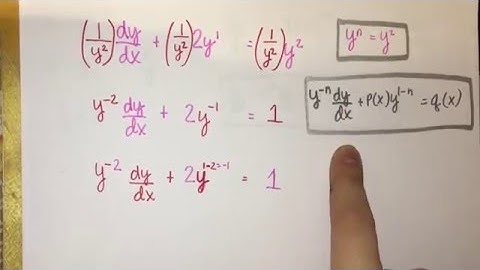 (1/y²) dy/dx + (1/y²) 2y¹ = (1/y²) y²
yⁿ = y²
y⁻² dy/dx + 2y⁻¹ = 1
y⁻ⁿ dy/dx + P(x)y¹⁻ⁿ = q(x)
y⁻² dy/dx + 2y¹⁻²⁼⁻¹ = 1